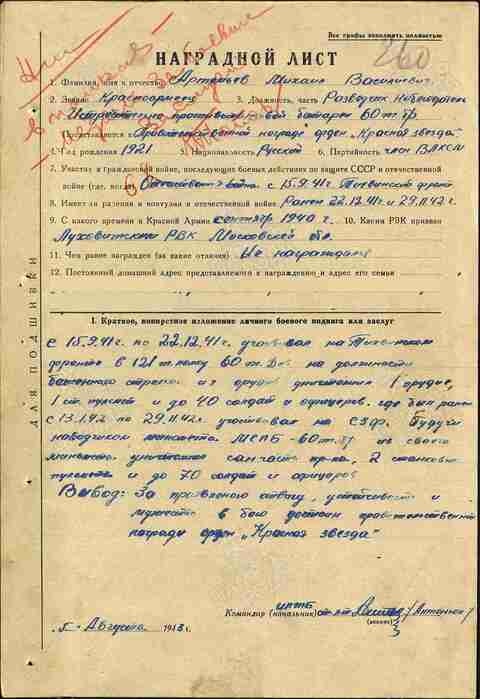 Все графы заполнять полностью
260
НАГРАДНОЙ ЛИСТ
1. Фамилия, имя и отчество Артемьев Михаил Васильевич
2. Звание Красноармеец 3. Должность, часть Разведчик наблюдатель
Истребительно противотанковой батареи 60 т. бр
Представляется к Правительственной награде орден „Красная звезда"
4. Год рождения 1921 5. Национальность Русский 6. Партийность член ВЛКСМ
7. Участие в гражданской войне, последующих боевых действиях по защите СССР и отечественной
войне (где, когда) Отечествен. война с 15.9.41г. Тихвинский фронт
8. Имеет ли ранения и контузии в отечественной войне Ранен 22.12.41г и 29.11.42г.
9. С какого времени в Красной Армии сентябрь 1940 г. 10. Каким РВК призван
Луховицким РВК Московской обл.
11. Чем ранее награжден (за какие отличия) Не награждался
12. Постоянный домашний адрес представляемого к награждению и адрес его семьи
ДЛЯ ПОДШИВКИ
I. Краткое, конкретное изложение личного боевого подвига или заслуг
с 15.9.41г. по 22.12.41г. участвовал на Тихвинском
фронте в 121 т. полку 60 т. Див на должности
башенного стрелка из орудия уничтожил 1 орудие,
1 ст. пулемет и до 40 солдат и офицеров. где был ранен
с 13.1.42 по 29.11.42г. участвовал на СЗФ. Будучи
наводчиком миномета МСПБ - 60 т. бр из своего
миномета уничтожил сан. часть пр-ка, 2 станковых
пулемета и до 70 солдат и офицеров
Вывод: За проявленную отвагу, устойчивость и
мужество в бою достоин правительственной
награды орден „Красная звезда"
Командир (начальник) иптб ст. л-т /Антоненко/
(звание)
5. Августа 1943 г.